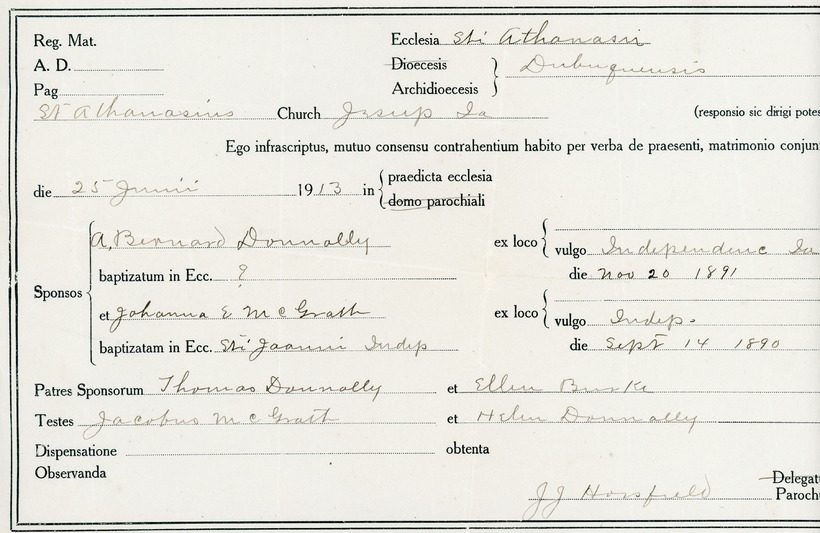 Reg. Mat.
Ecclesia Sti Athanasii
A. D.
Dioecesis
Archidioecesis
Dubuquensis
Pag
St Athanasius Church Jesup Ia
(responsio sic dirigi potes
Ego infrascriptus, mutuo consensu contrahentium habito per verba de praesenti, matrimonio conjun
die 25 Junii 1913 in praedicta ecclesia
domo parochiali
Sponsos
A. Bernard Donnally
ex loco
vulgo Independence Ia
baptizatum in Ecc. ?
die Nov 20 1891
et Johanna E McGrath
ex loco
vulgo Indep.
baptizatam in Ecc. Sti Joanni Indep
die Sept 14 1890
Patres Sponsorum Thomas Donnally et Ellen Burke
Testes Jacobus McGrath et Helen Donnally
Dispensatione obtenta
Observanda
J J Horsfield
Delegat
Paroch